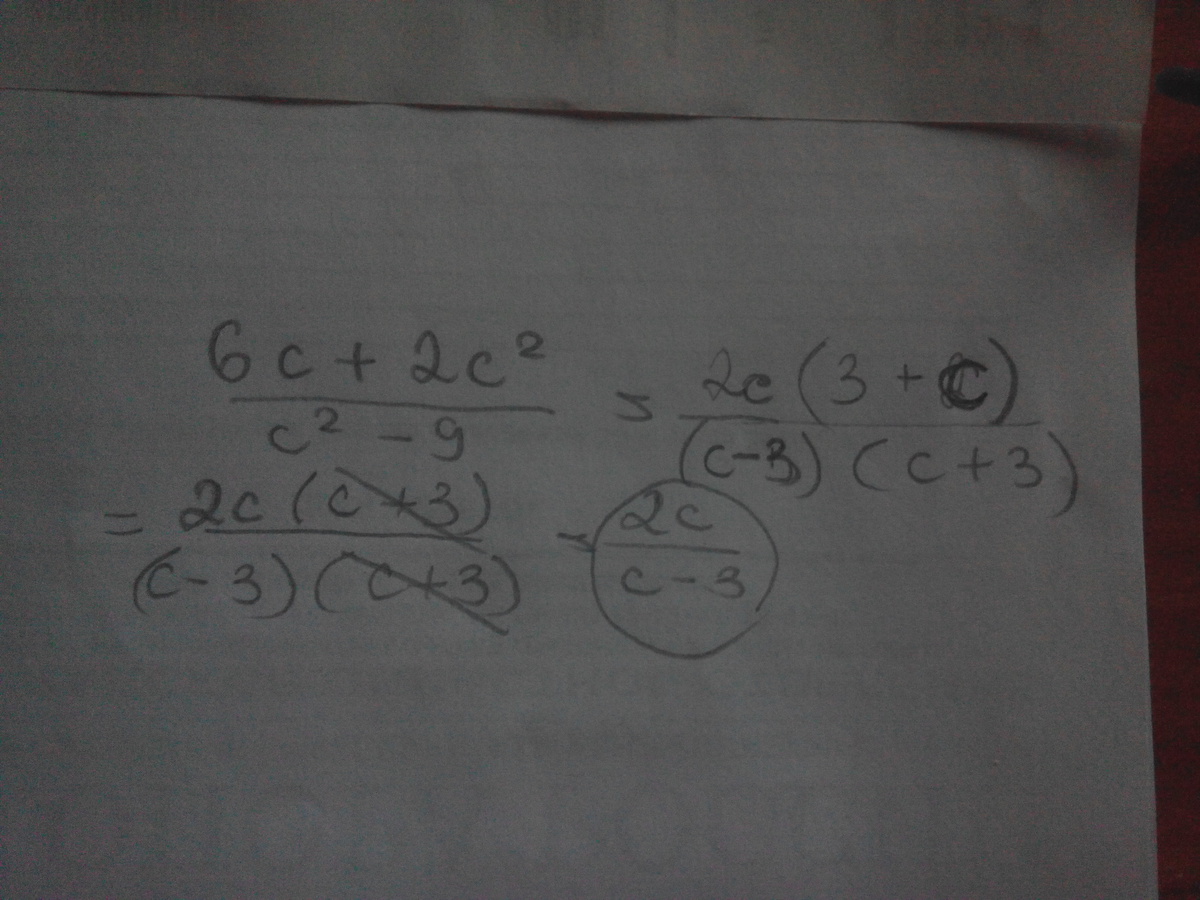 (6c + 2c²)/(c² - 9) = (2c (3 + c))/((c-3) (c+3))
= (2c (c+3))/((c-3) (c+3)) = (2c)/(c-3)